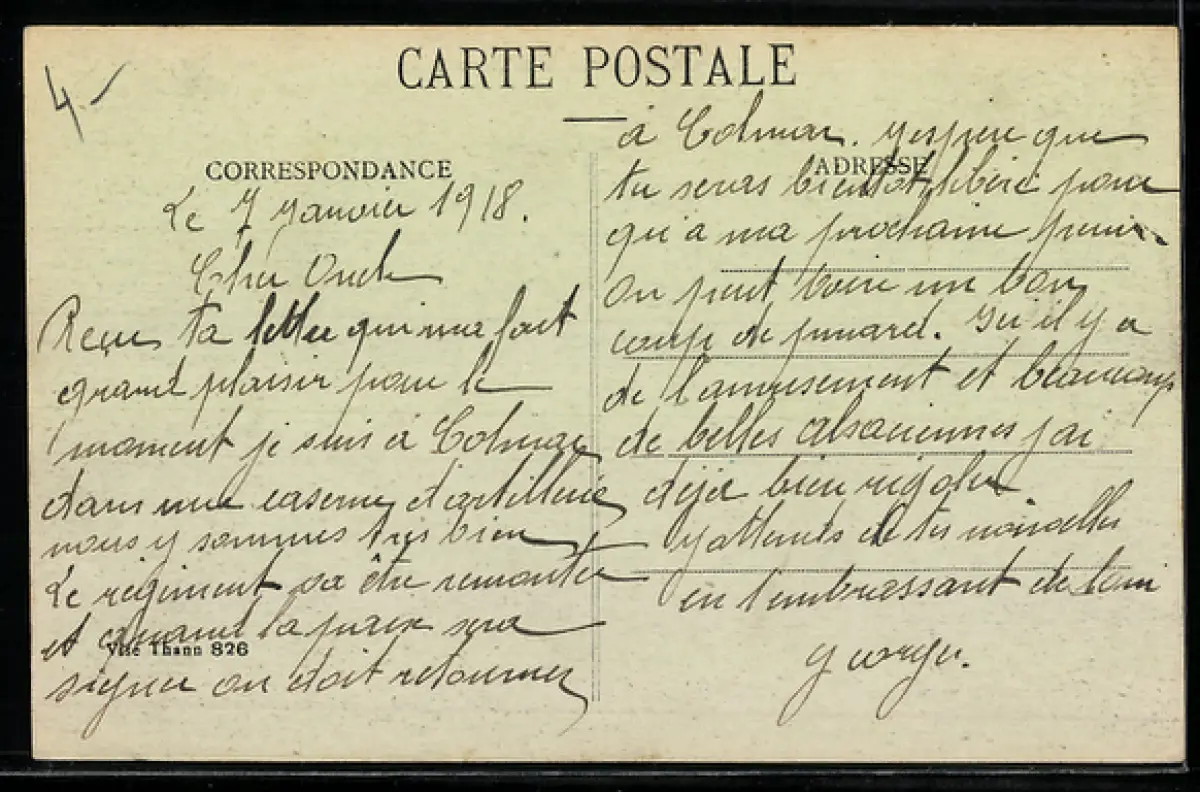 4.-
CARTE POSTALE
CORRESPONDANCE
Le 7 Janvier 1918.
Cher Oncle
Reçue ta lettre qui ma fait
grand plaisir pour le
moment je suis à Colmar
dans une caserne d'artillerie
nous y sommes très bien
Le régiment va être remontée
et quand la paix sera
signer on doit retourner
Visé Thann 826
ADRESSE
à Colmar. J'espère que
tu seras bientôt libéré pour
qu'a ma prochaine
on peut boire un bon
coup de pinard. Ici il y a
de l'amusement et beaucoup
de belles alsaciennes j'ai
déja bien rigoler.
J'attends de tes nouvelles
en t'embrassant de loin
Georges.